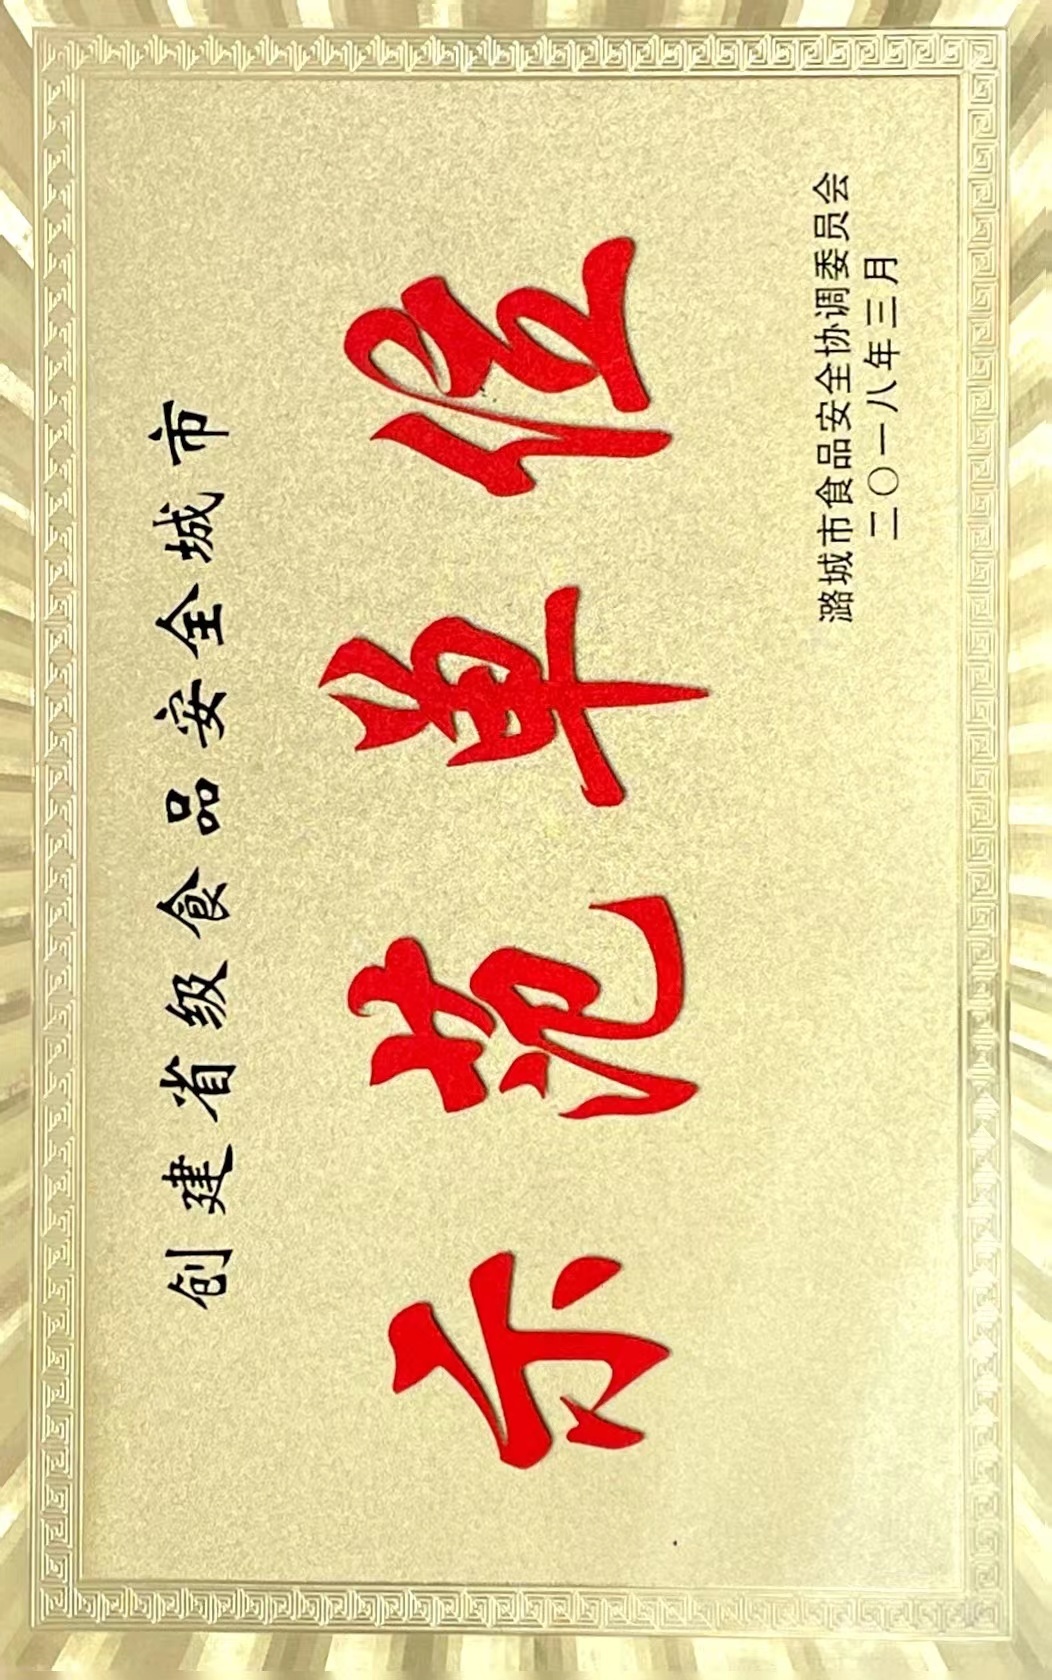 创建省级食品安全城市
示范单位
潞城市食品安全协调委员会
二〇一八年三月